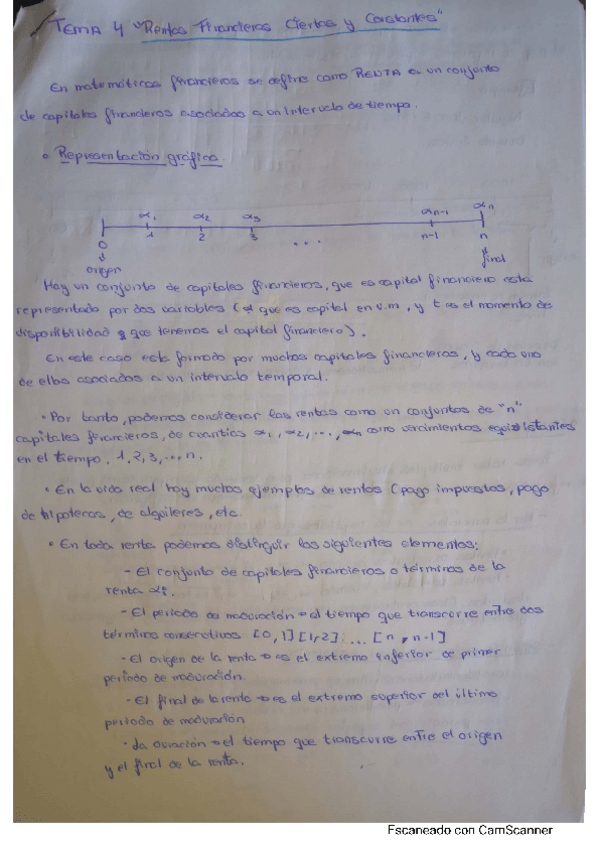 TEMA 4 "Rentas Financieras Ciertas y Constantes"
En matemáticas financieras se define como RENTA a un conjunto
de capitales financieros asociados a un intervalo de tiempo.
• Representación gráfica.
α1 α2 α3 αn-1 αn
0 1 2 3 ... n-1 n
origen final
Hay un conjunto de capitales financieros, que es capital financiero esta
representado por dos variables (α que es capital en u.m, y t es el momento de
disponibilidad q que tenemos el capital financiero).
En este caso esta formado por muchos capitales financieros, y cada uno
de ellos asociados a un intervalo temporal.
• Por tanto, podemos considerar las rentas como un conjuntos de "n"
capitales financieros, de cuantía α1, α2, ..., αn cono vencimientos equidistantes
en el tiempo. 1, 2, 3, ..., n.
• En la vida real hay muchos ejemplos de rentas (pago impuestos, pago
de hipotecas, de alquileres, etc.
• En toda renta podemos distinguir los siguientes elementos:
- El conjunto de capitales financieros o términos de la
renta αi.
- El periodo de maduración → el tiempo que transcurre entre dos
términos consecutivos [0,1][1,2]; ... [n, n-1]
- El origen de la renta → es el extremo inferior de primer
periodo de maduración.
- El final de la renta → es el extremo superior del último
periodo de maduración
- La duración → el tiempo que transcurre entre el origen
y el final de la renta.
Escaneado con CamScanner